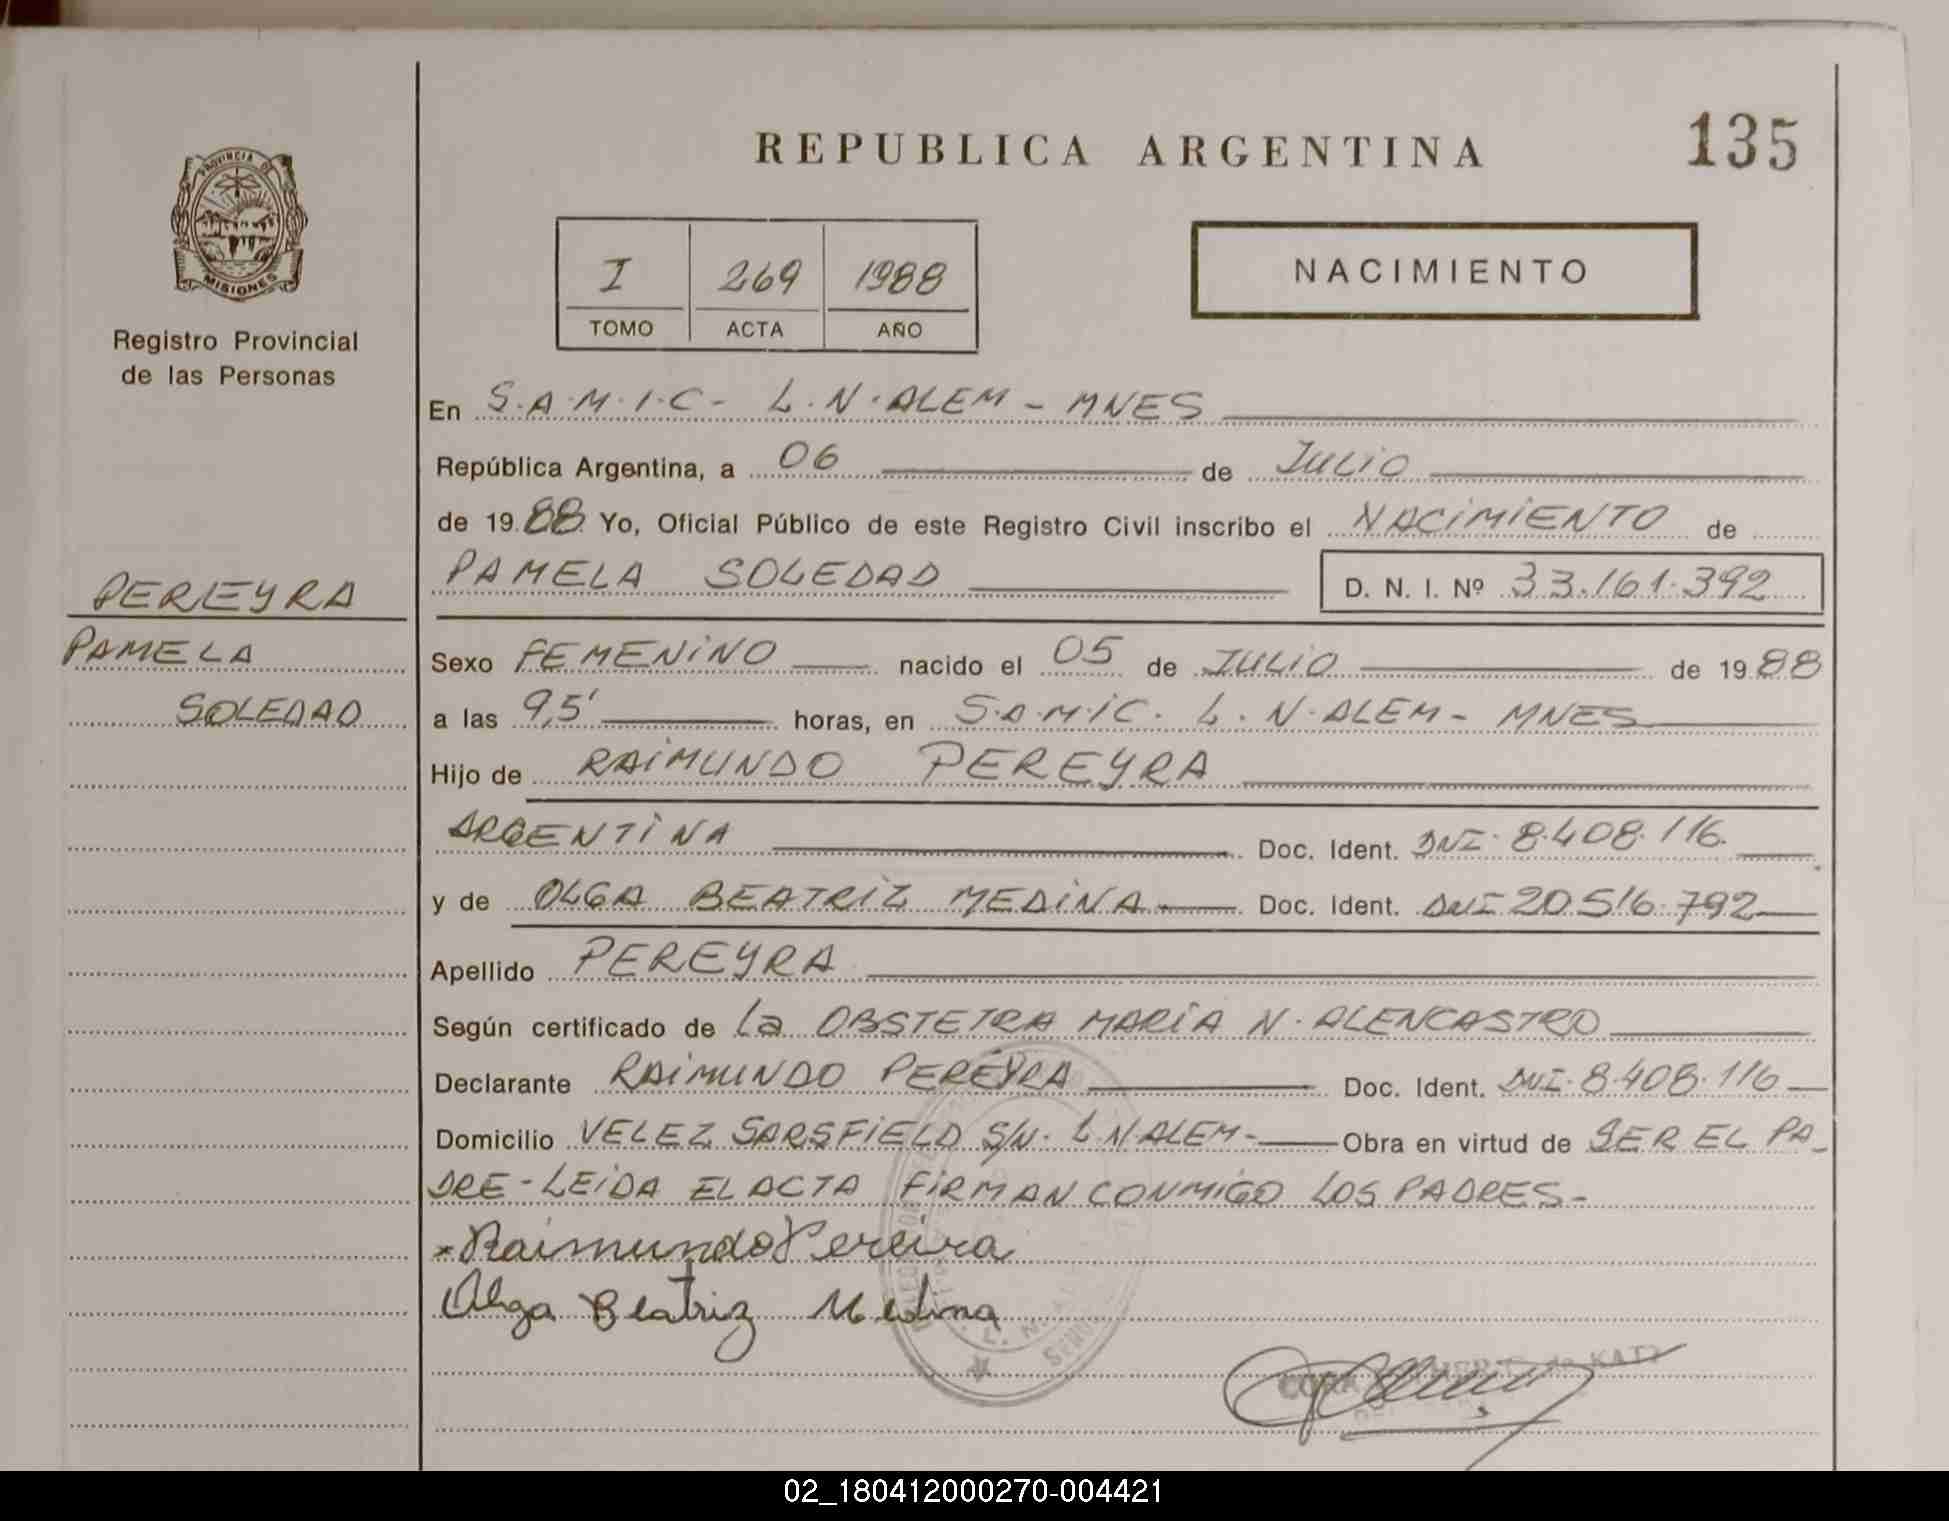 PROVINCIA DE
MISIONES
Registro Provincial
de las Personas
PEREYRA
PAMELA
SOLEDAD
REPUBLICA ARGENTINA
135
I 269 1988
TOMO ACTA AÑO
NACIMIENTO
En S.A.M.I.C- L.N.ALEM - MNES
República Argentina, a 06 de JULIO
de 1988 Yo, Oficial Público de este Registro Civil inscribo el NACIMIENTO de
PAMELA SOLEDAD D. N. I. Nº 33.161.392
Sexo FEMENINO nacido el 05 de JULIO de 1988
a las 9,5' horas, en S.A.M.I.C. L.N.ALEM- MNES
Hijo de RAIMUNDO PEREYRA
ARGENTINA Doc. Ident. DNI. 8.408.116.
y de OLGA BEATRIZ MEDINA Doc. Ident. DNI 20.516.792
Apellido PEREYRA
Según certificado de La OBSTETRA MARÍA N. ALENCASTRO
Declarante RAIMUNDO PEREYRA Doc. Ident. DNI. 8.408.116
Domicilio VELEZ SARSFIELD S/N. L.N.ALEM- Obra en virtud de SER EL PA-
DRE-LEIDA EL ACTA FIRMAN CONMIGO LOS PADRES-
Raimundo Pereira
Olga Beatriz Medina
KATZ
02_180412000270-004421